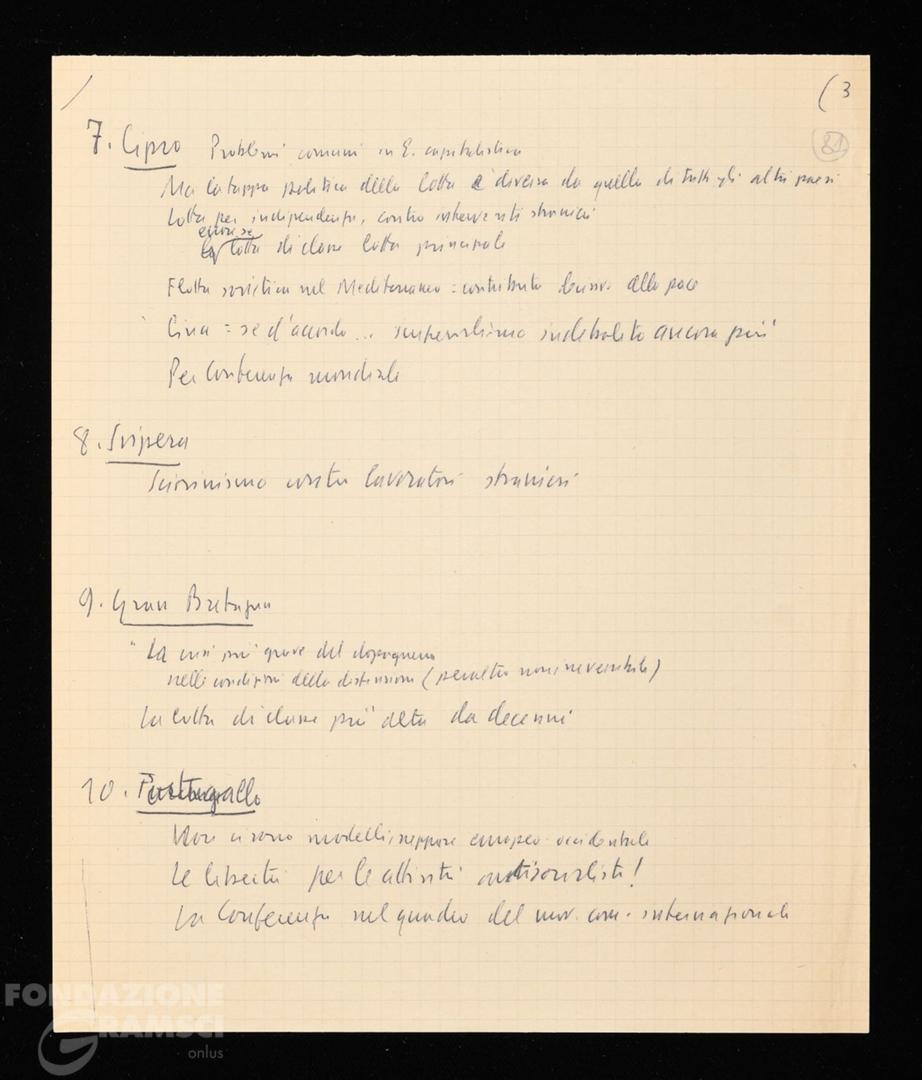 (3
81
7. Cipro Problemi comuni in E. capitalistica
Ma la tappa politica della lotta è diversa da quella di tutti gli altri paesi
Lotta per indipendenza, contro interventi stranieri
lotta di classe lotta principale
Flotta sovietica nel Mediterraneo = contributo decisivo alla pace
Cina = se d'accordo... imperialismo indebolito ancora più
Per Conferenza mondiale
8. Svizzera
Sciovinismo contro lavoratori stranieri
9. Gran Bretagna
La crisi più grave del dopoguerra
nelle condizioni della distensione (peraltro non irreversibile)
La lotta di classe più alta da decenni
10. Portogallo
Non ci sono modelli, neppure europeo-occidentale
Le libertà per le attività antisocialiste!
La Conferenza nel quadro del mov. com. internazionale
FONDAZIONE
GRAMSCI
onlus